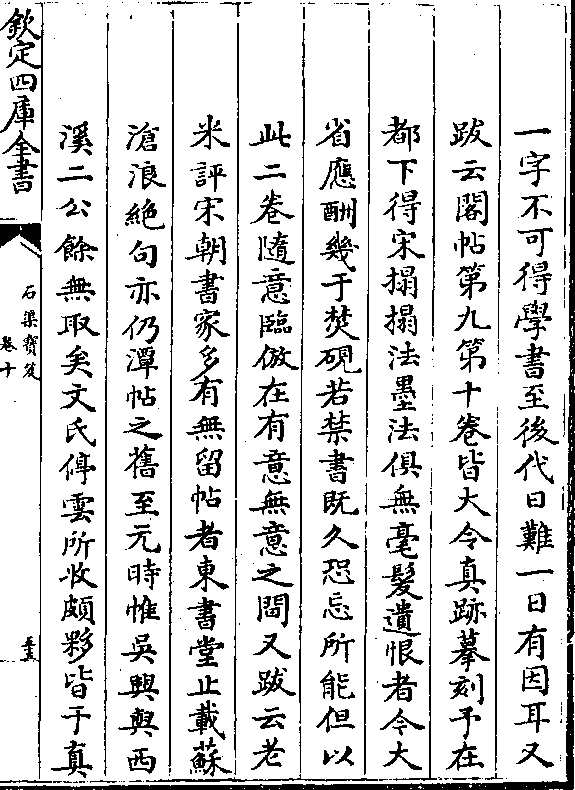 一字不可得學書至後代日難一日有因耳又
跋云閣帖第九第十卷皆大令真跡摹刻予在
都下得宋搨搨法墨法俱無毫髮遺恨者令大
省應酬幾于焚硯若禁書既久恐忘所能但以
此二卷隨意臨倣在有意無意之間又跋云老
米評宋朝書家多有無留帖者東書堂止載蘇
滄浪絶句亦仍潭帖之舊至元時惟吳興與西
溪二公餘無取矣文氏停雲所收頗夥皆于真
欽定四庫全書
石渠寶笈
卷十